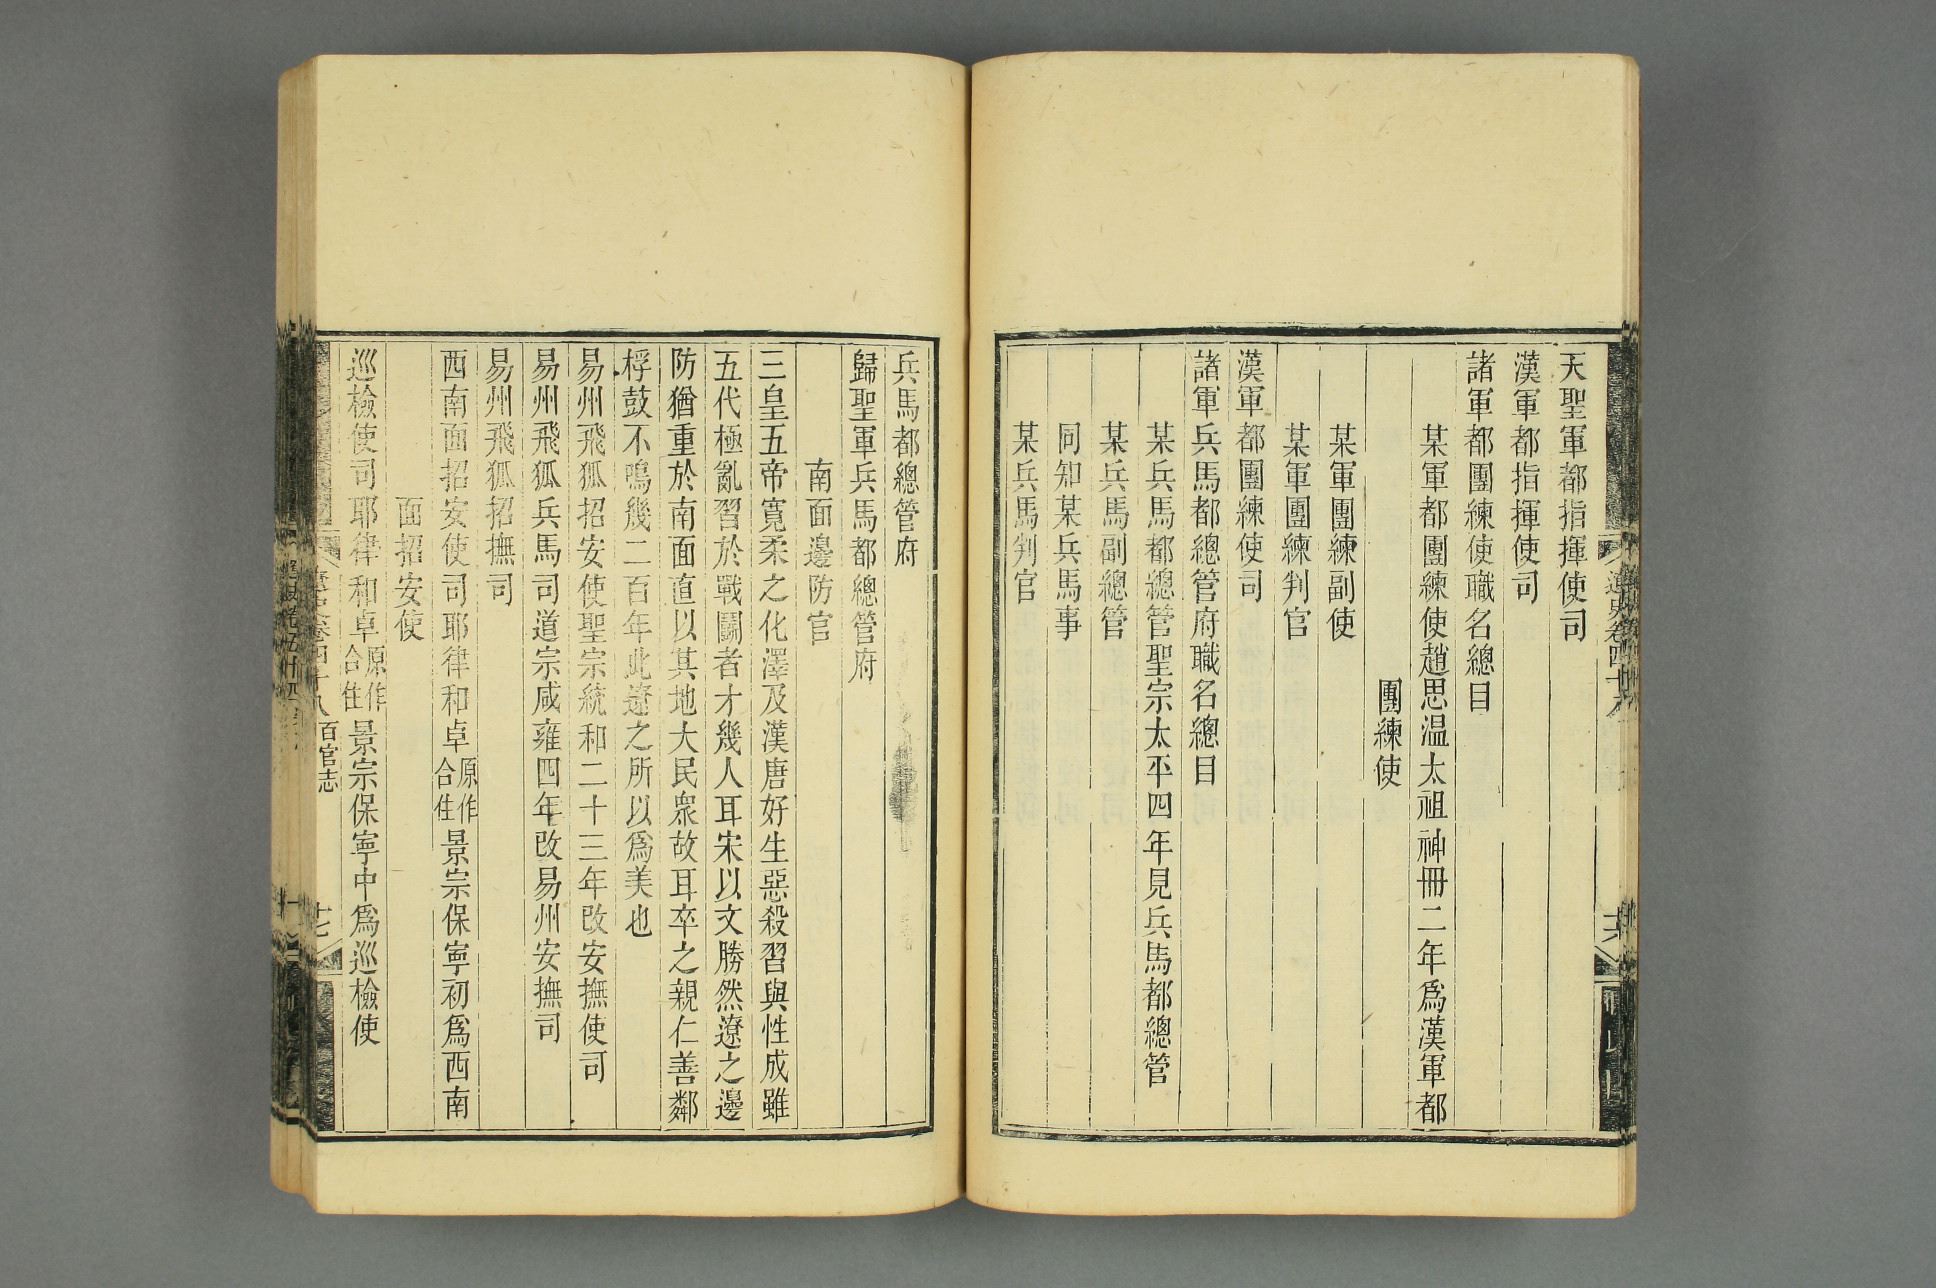 天聖軍都指揮使司
漢軍都指揮使司
諸軍都團練使職名總目
某軍都團練使趙思温太祖神冊二年爲漢軍都
團練使
某軍團練副使
某軍團練判官
漢軍都團練使司
諸軍兵馬都總管府職名總目
某兵馬都總管聖宗太平四年見兵馬都總管
某兵馬副總管
同知某兵馬事
某兵馬判官
兵馬都總管府
歸聖軍兵馬都總管府
南面邊防官
三皇五帝寬柔之化澤及漢唐好生惡殺習與性成雖
五代極亂習於戰鬭者才幾人耳宋以文勝然遼之邊
防猶重於南面直以其地大民衆故耳卒之親仁善鄰
桴鼓不鳴幾二百年此遼之所以爲美也
易州飛狐招安使聖宗統和二十三年改安撫使司
易州飛狐兵馬司道宗咸雍四年改易州安撫司
易州飛狐招撫司
西南面招安使司耶律和卓原作合住景宗保寧初爲西南
面招安使
巡檢使司耶律和卓原作合住景宗保寧中爲巡檢使
遼史卷四十八
百官志
十七